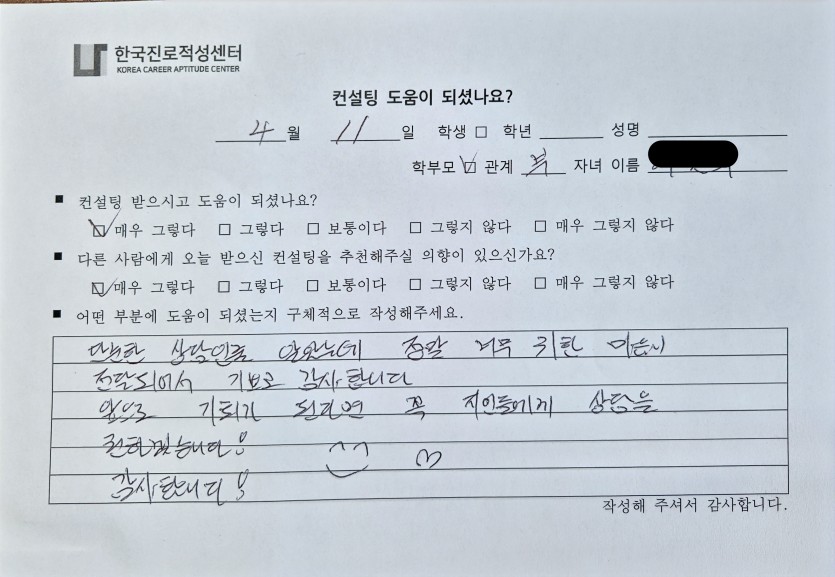 한국진로적성센터
KOREA CAREER APTITUDE CENTER
컨설팅 도움이 되셨나요?
4월 11일 학생 □ 학년 성명
학부모 ☑ 관계 부 자녀 이름
■ 컨설팅 받으시고 도움이 되셨나요?
☑ 매우 그렇다 □ 그렇다 □ 보통이다 □ 그렇지 않다 □ 매우 그렇지 않다
■ 다른 사람에게 오늘 받으신 컨설팅을 추천해주실 의향이 있으신가요?
☑ 매우 그렇다 □ 그렇다 □ 보통이다 □ 그렇지 않다 □ 매우 그렇지 않다
■ 어떤 부분에 도움이 되셨는지 구체적으로 작성해주세요.
단순한 상담인줄 알았는데 정말 너무 귀한 마음이
전달되어서 기쁘고 감사합니다
앞으로 기회가 된다면 꼭 지인들에게 상담을
전하겠습니다!
감사합니다!
작성해 주셔서 감사합니다.